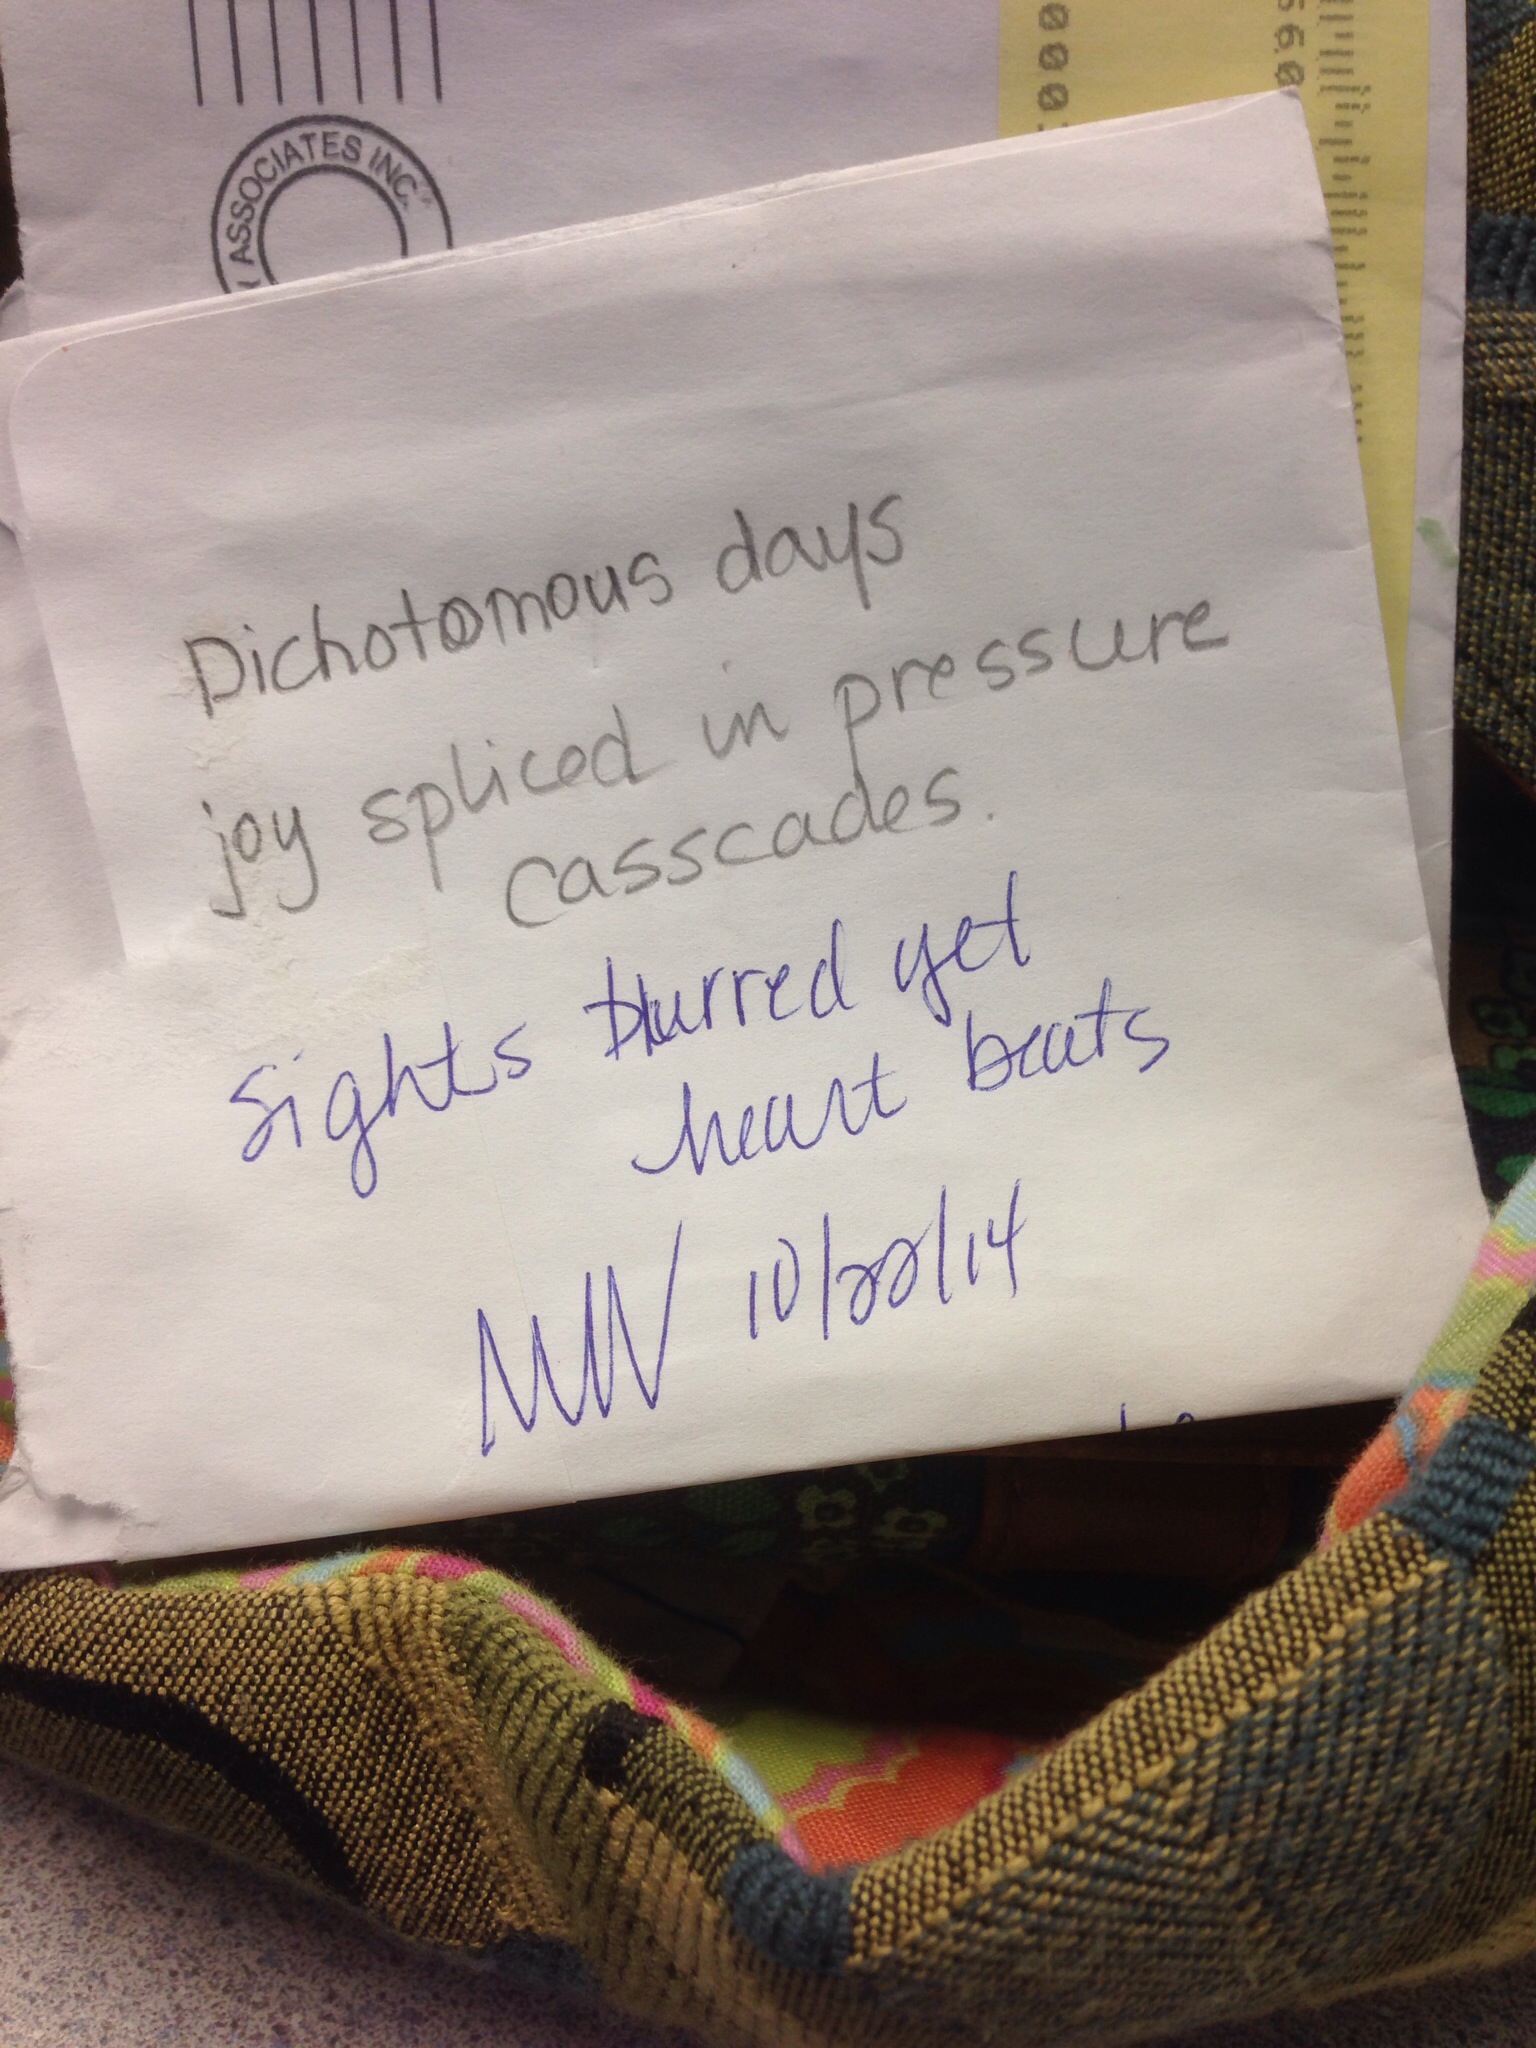 ASSOCIATES INC.
Dichotomous days
joy spliced in pressure
casscades.
sights blurred yet
heart beats
10/22/14